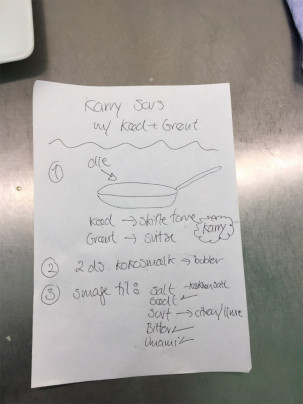 Karry Sovs
w/ Kød + Grønt
① olie
Kød → skifte farve
Karry
Grønt → svitse
② 2 dl. kokosmælk → bobler
③ smage til: salt →
Sødt ✓
Surt → citron/lime
Bitter ✓
Umami ✓